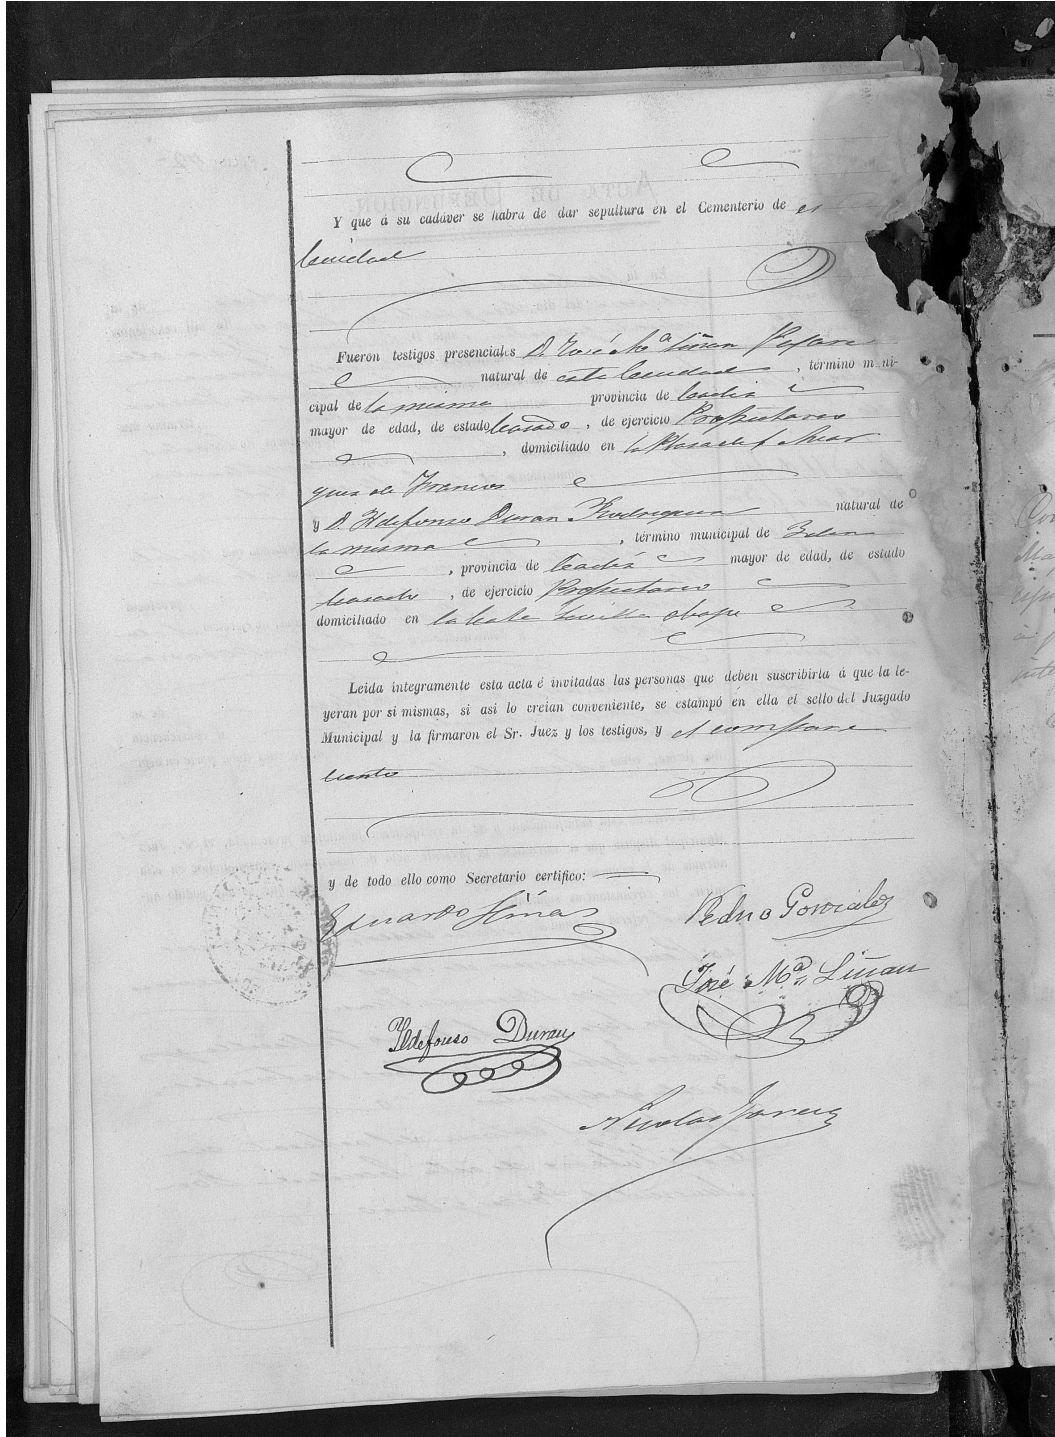 Y que á su cadáver se habrá de dar sepultura en el Cementerio de
Ciudad
Fueron testigos presenciales D. José Mª Liñan
natural de esta Ciudad, término muni-
cipal de la misma provincia de Cadiz
mayor de edad, de estado Casado, de ejercicio Propietario
, domiciliado en la Plaza del Mar
ques de Francos
y D. Ildefonso Duran Rodriguez natural de
la misma, término municipal de Idem
, provincia de Cadiz mayor de edad, de estado
Casado, de ejercicio Propietario
domiciliado en la Calle
Leida integramente esta acta é invitadas las personas que deben suscribirla á que la le-
yeran por si mismas, si asi lo creian conveniente, se estampó en ella el sello del Juzgado
Municipal y la firmaron el Sr. Juez y los testigos, y el compare
ciente
y de todo ello como Secretario certifico:
Eduardo
Pedro Gonzalez
José Mª Liñan
Ildefonso Duran
Nicolas